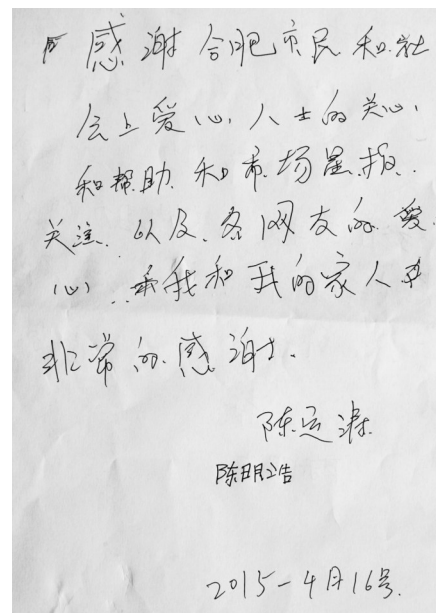 感谢合肥市民和社
会上爱心人士的关心,
和帮助.和市场星报.
关注.以及.各网友的.爱
心.我和我的家人
非常的.感谢.
陈运
陈明浩
2015-4月16号.